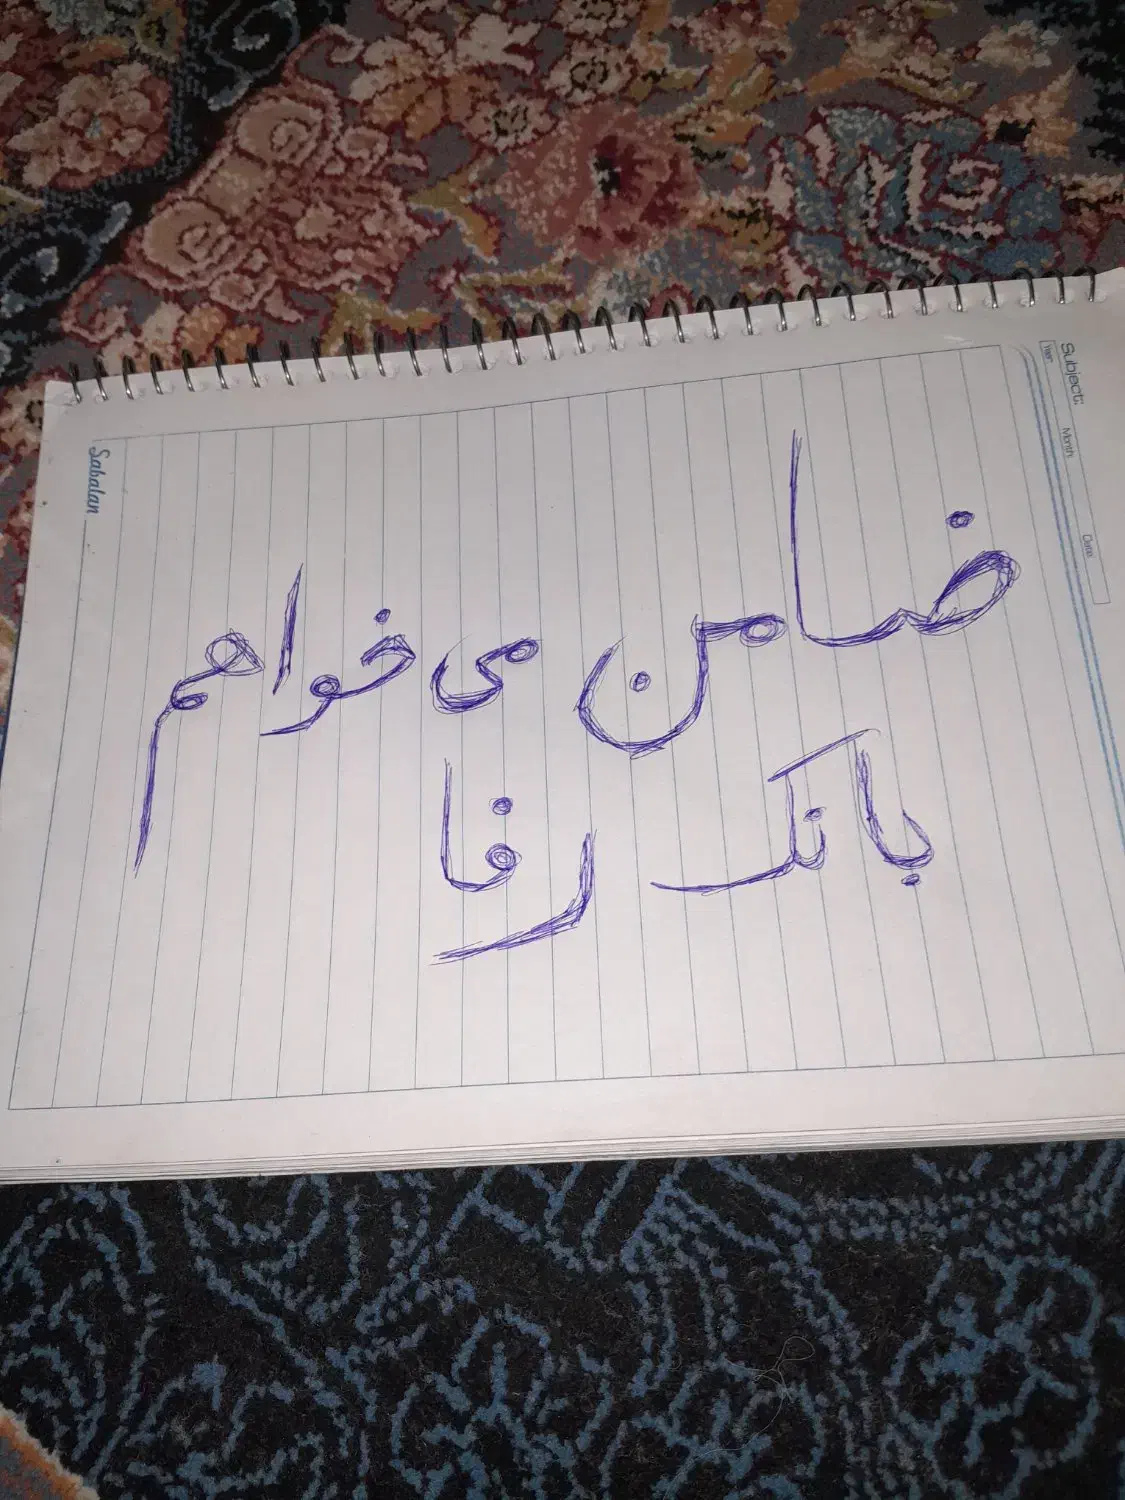 ضامن می خواهم
بانک رفا
Sabalan
Subject:
Year:
Month:
Date: